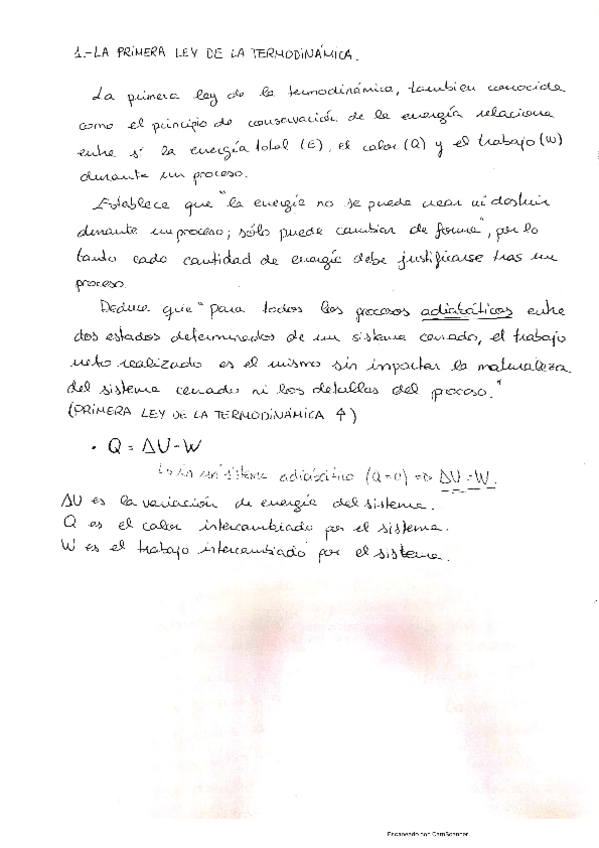 1.-LA PRIMERA LEY DE LA TERMODINÁMICA.
La primera ley de la termodinámica, tambien conocida
como el principio de conservación de la energía relaciona
entre si la energía total (E), el calor (Q) y el trabajo (W)
durante un proceso.
Establece que "la energía no se puede crear ni destruir
durante un proceso; sólo puede cambiar de forma", por lo
tanto cada cantidad de energía debe justificarse tras un
proceso.
Deduce que "para todos los procesos adiabáticos entre
dos estados determinados de un sistema cerrado, el trabajo
neto realizado es el mismo sin importar la naturaleza
del sistema cerrado ni los detalles del proceso."
(PRIMERA LEY DE LA TERMODINÁMICA 4)
• Q = ΔU-W
en un sistema adiabático (Q=0) => ΔU=W.
ΔU es la variación de energía del sistema.
Q es el calor intercambiado por el sistema.
W es el trabajo intercambiado por el sistema.
Escaneado con CamScanner